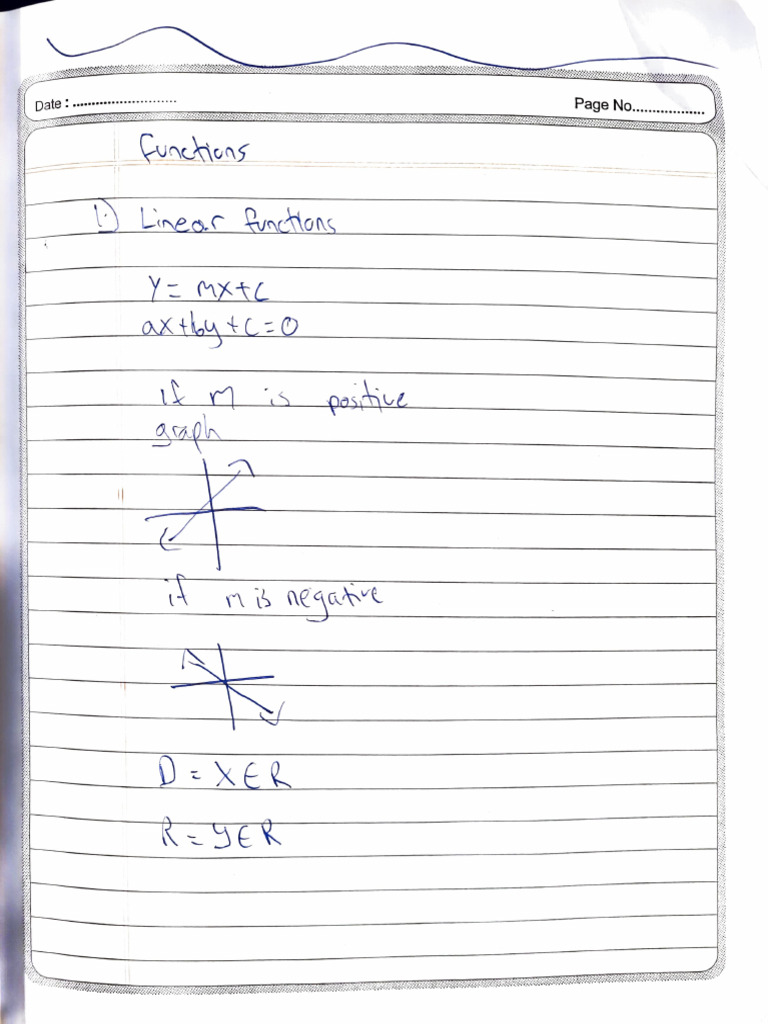 Date : ..........................
Page No..................
Functions
1.) Linear functions
y = mx+c
ax+by+c=0
if m is positive
graph
if m is negative
D = x ∈ R
R = y ∈ R